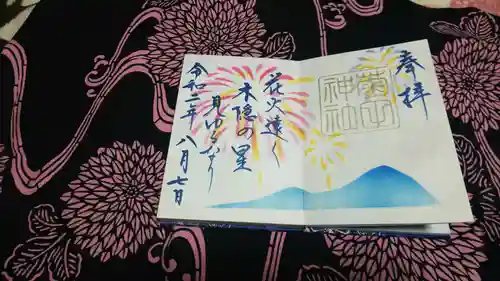 奉拝
花火遠く
木隠の星
見ゆるなり
令和二年八月七日